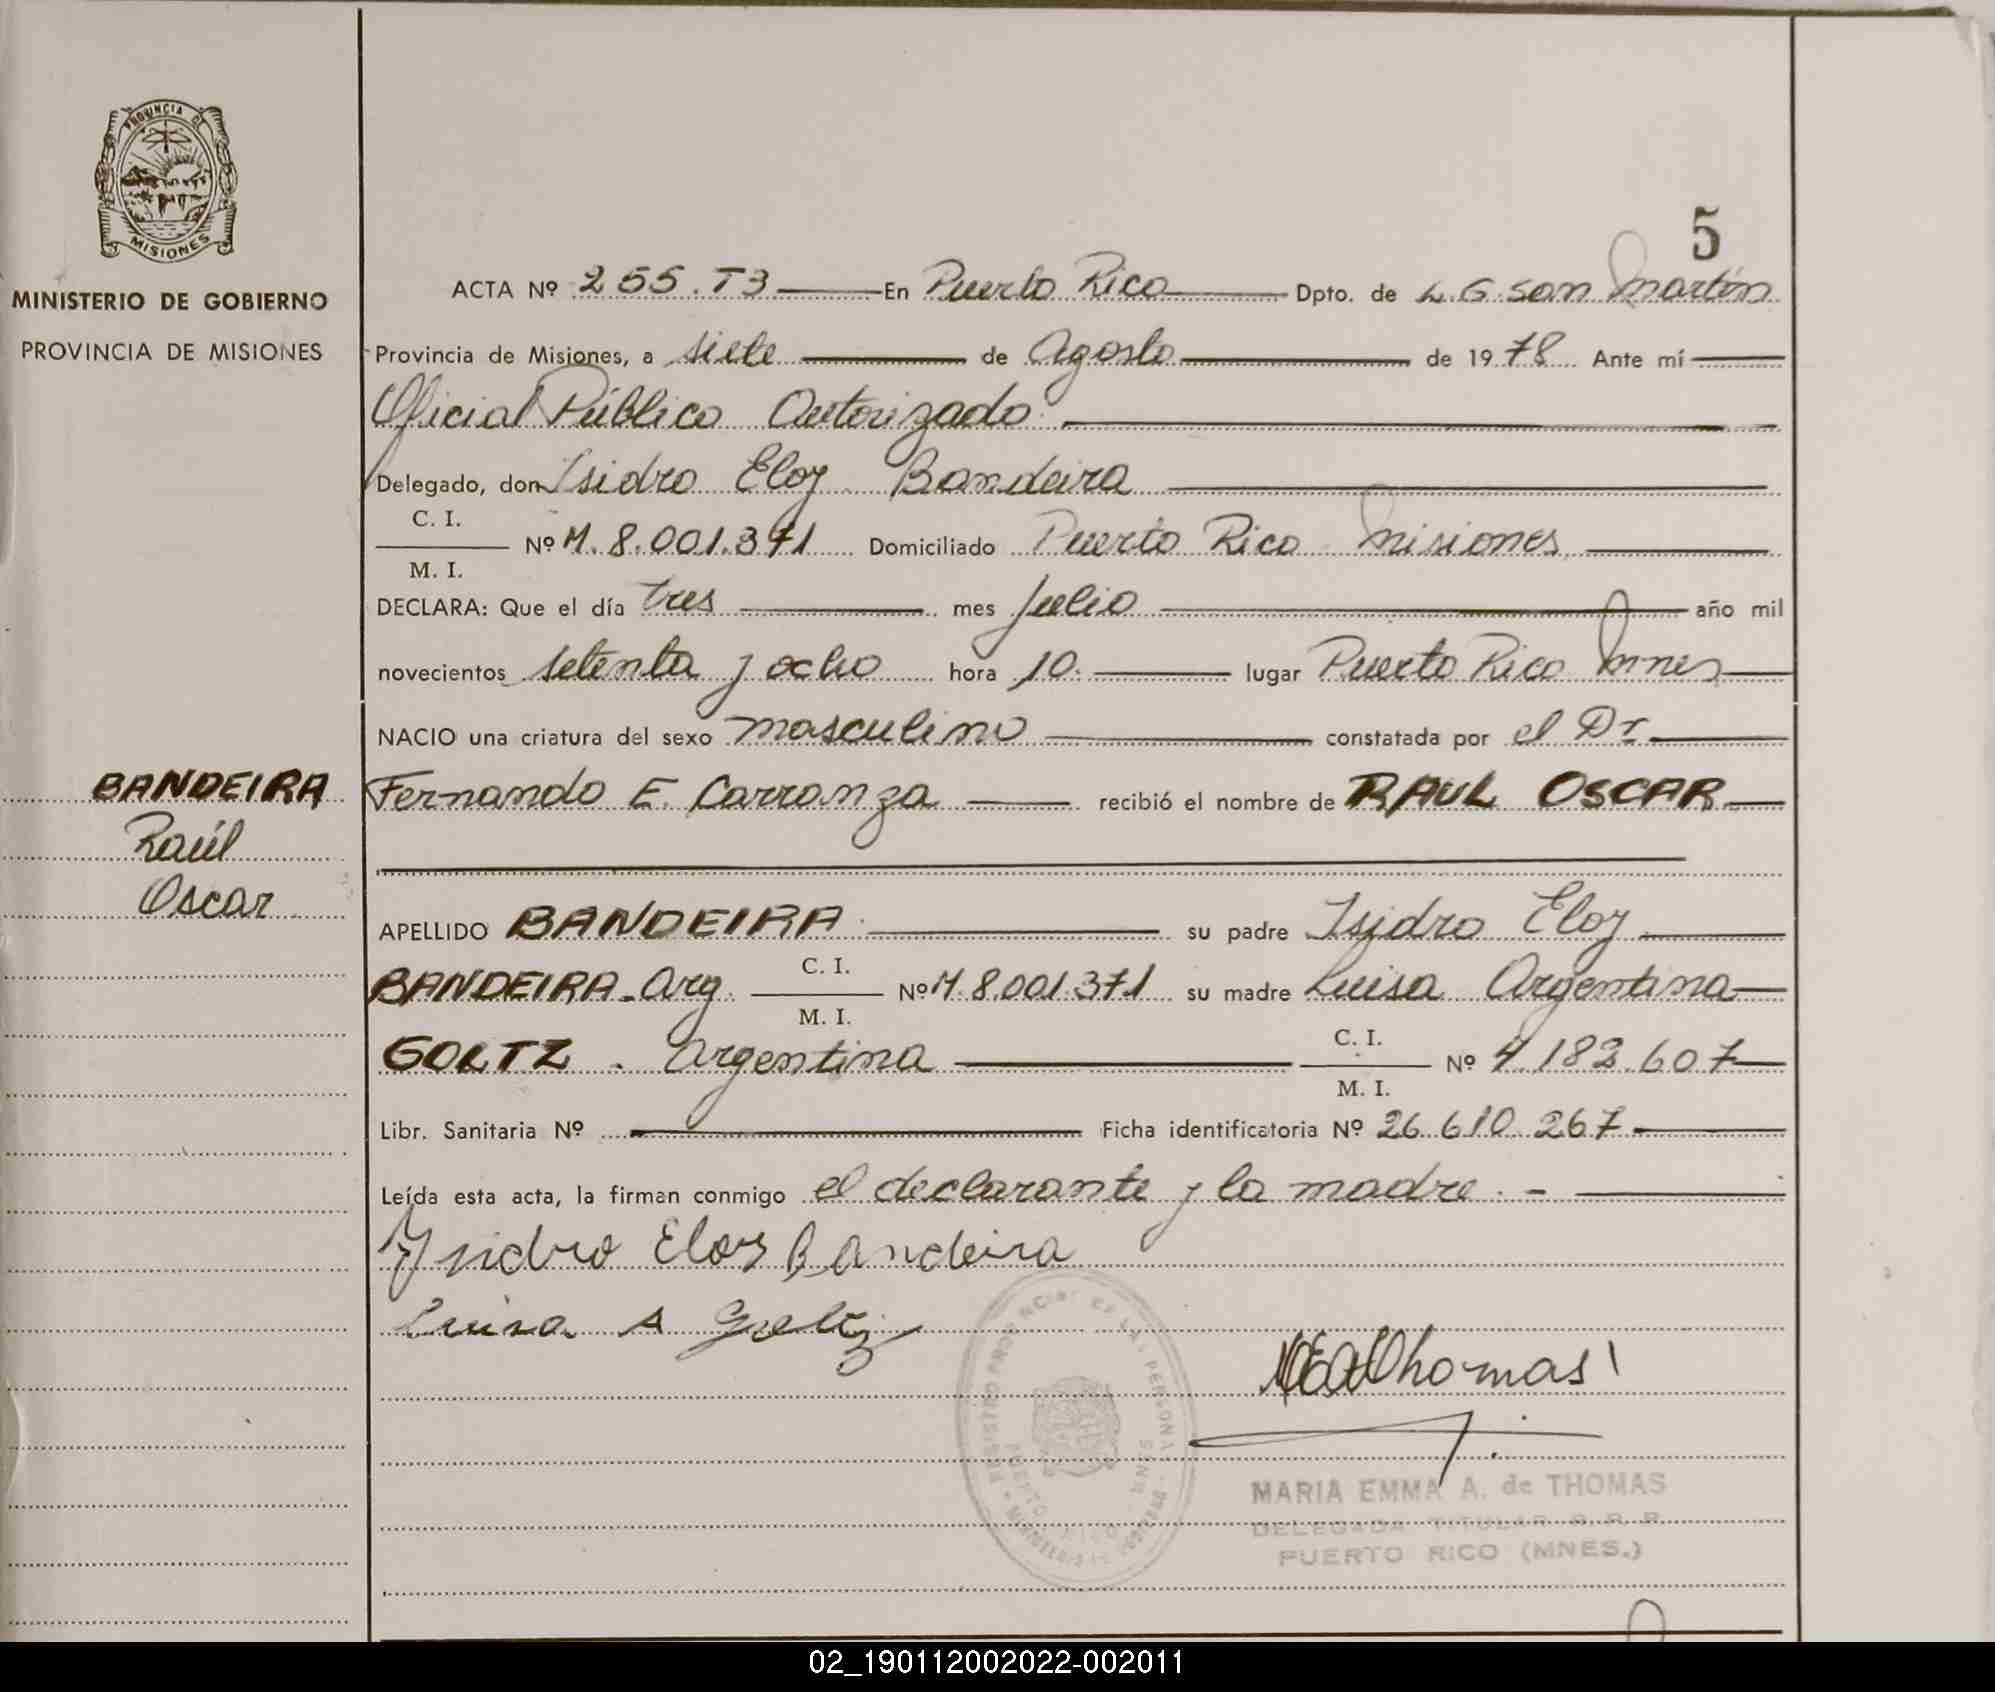 PROVINCIA DE
MISIONES
MINISTERIO DE GOBIERNO
PROVINCIA DE MISIONES
5
ACTA Nº 255.T3 En Puerto Rico Dpto. de L.G. San Martín
Provincia de Misiones, a siete de Agosto de 1978 Ante mí
Oficial Público Autorizado
Delegado, don Isidro Eloy Bandeira
C. I.
Nº M. 8.001.371 Domiciliado Puerto Rico Misiones
M. I.
DECLARA: Que el día tres mes Julio año mil
novecientos setenta y ocho hora 10. lugar Puerto Rico Mnes
NACIO una criatura del sexo masculino constatada por el Dr.
BANDEIRA
Raúl
Oscar
Fernando E. Carranza recibió el nombre de RAUL OSCAR
APELLIDO BANDEIRA su padre Isidro Eloy
BANDEIRA. Arg. C. I. M. I. Nº M. 8.001.371 su madre Luisa Argentina
GOLTZ. Argentina C. I. M. I. Nº 4.182.607
Libr. Sanitaria Nº Ficha identificatoria Nº 26.610.267
Leída esta acta, la firman conmigo el declarante y la madre. -
Ysidro Eloy Bandeira
Luisa A Goltz
MEAThomas
MARIA EMMA A. de THOMAS
DELEGADA TITULAR
PUERTO RICO (MNES.)
02_190112002022-002011